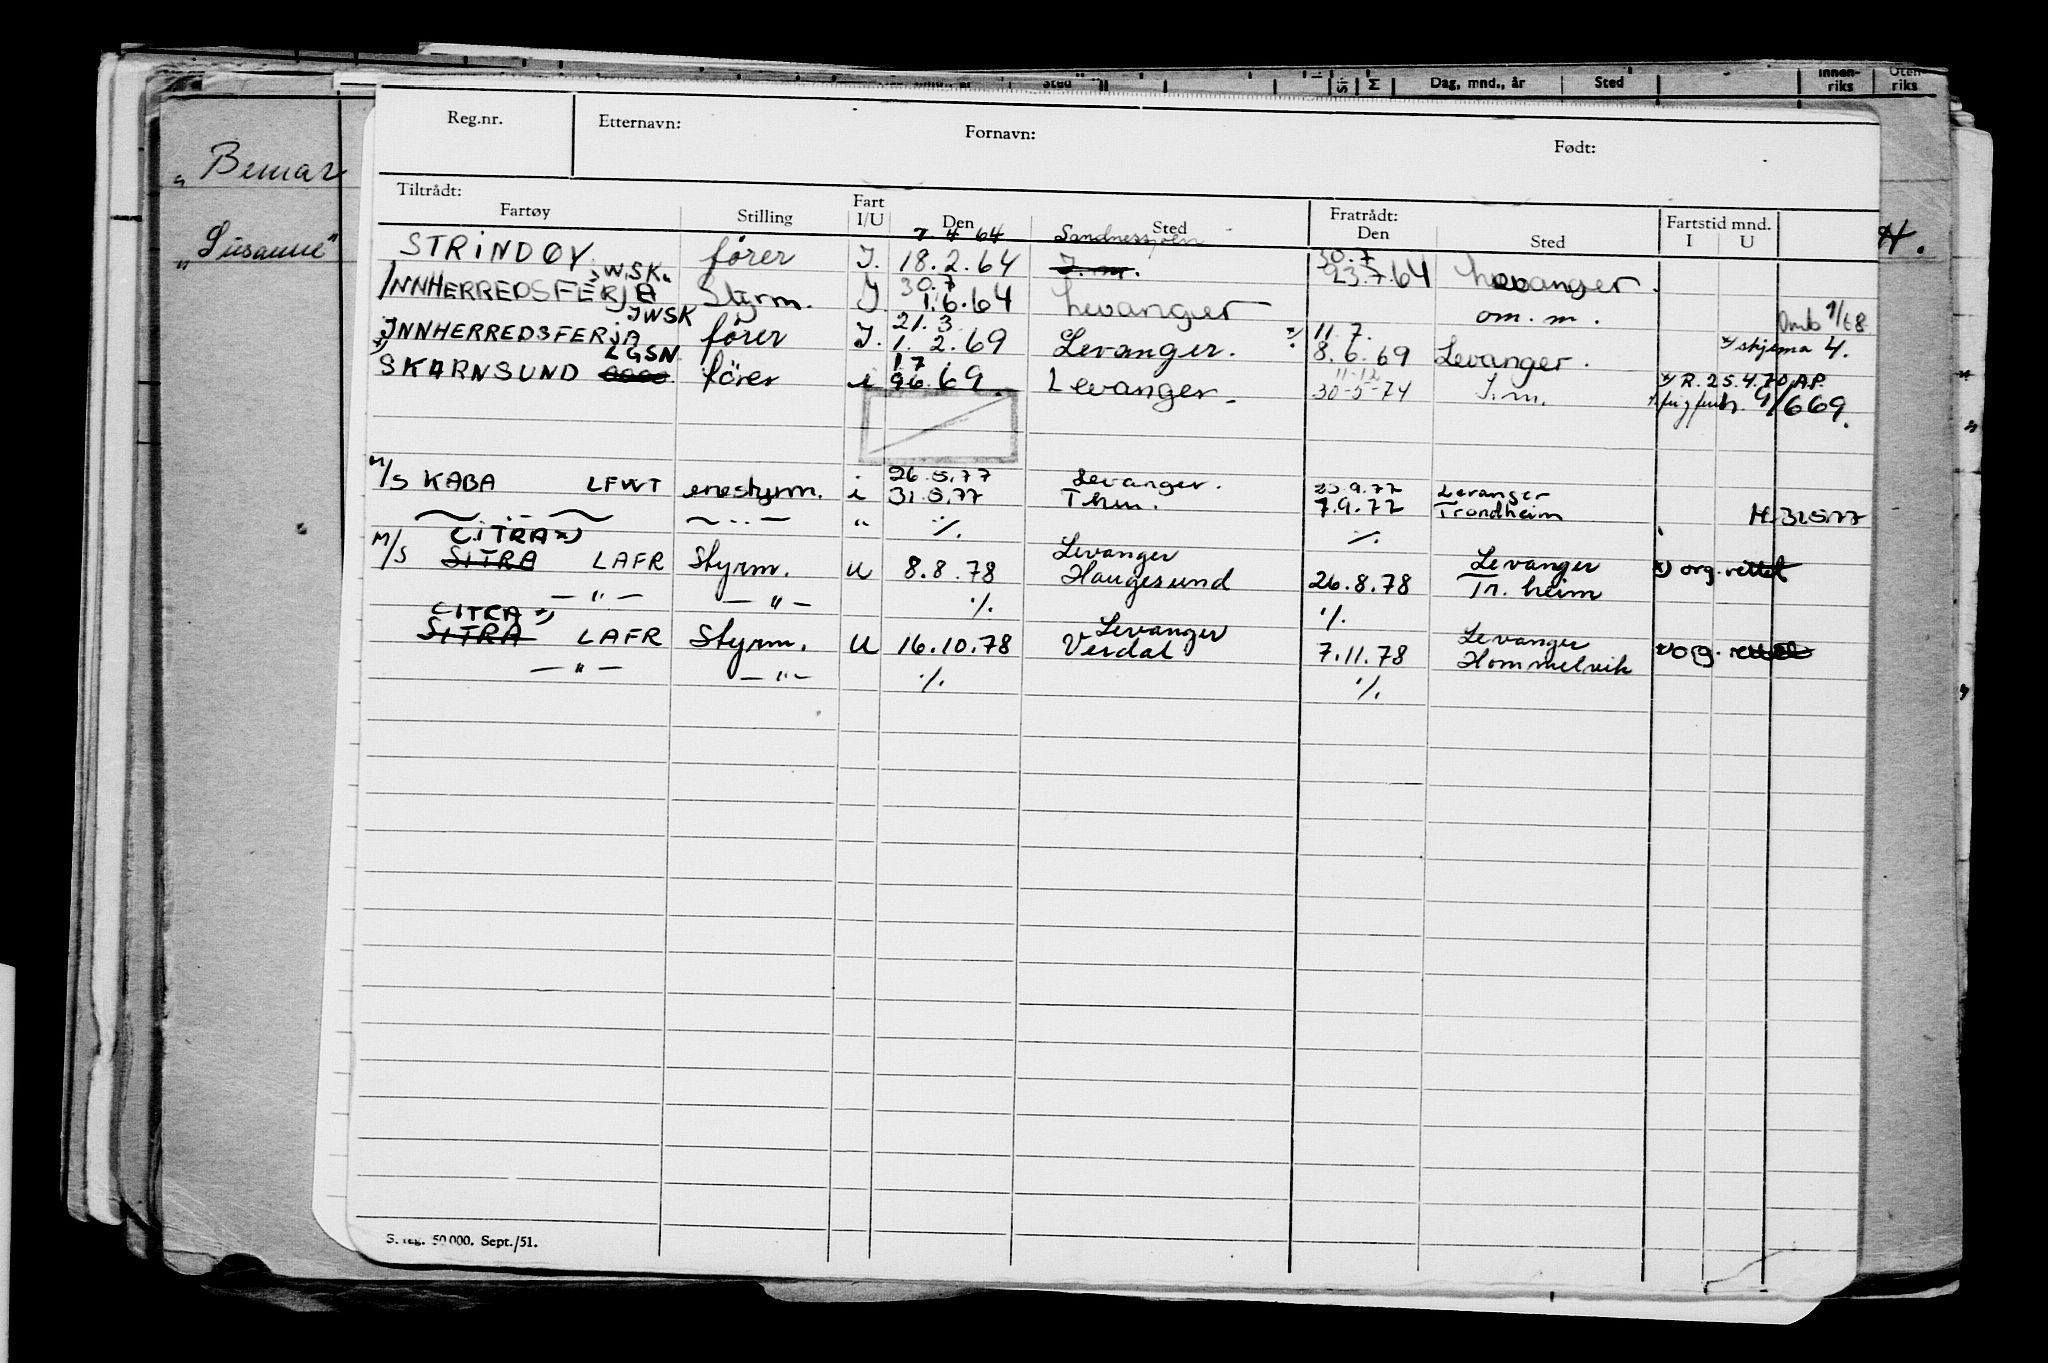 Dag, mnd., år Sted Innen-riks Uten-riks
„Bemar
„Susanne"
H.
Reg.nr. Etternavn: Fornavn: Født:
Tiltrådt: Fratrådt:
Fartøy Stilling Fart I/U Den Sted Den Sted Fartstid mnd. I U
7.4.64 Sandnessjøen 30.7
STRINDØY fører I. 18.2.64 I.m. 23.7.64 Levanger.
"WSK" 30.7
INNHERREDSFERJA Styrm. I 1.6.64 Levanger om.m. Omb 9/68
JWSK 21.3 11.7.
INNHERREDSFERJA fører I. 1.2.69 Levanger. 8.6.69 Levanger. x/ skjema 4.
LGSN 17 11-12 x/ R.25.4.70 A.P.
SKARNSUND fører i 9.6.69. Levanger. 30-5-74 I.m. 9/669.
26.5.77 Levanger. 23.9.77 Levanger
M/S KABA LFWT enestyrm. i 31.5.77 Thm. 7.9.77 Trondheim H.31.5.77
— " — — " — " ·/. ·/.
CITRA x) Levanger Levanger
M/S SITRA LAFR Styrm. U 8.8.78 Haugesund 26.8.78 Tr.heim x) org. rettet
— " — — " — ·/. ·/.
CITRA x) Levanger Levanger
SITRA LAFR Styrm. U 16.10.78 Verdal 7.11.78 Hommelvik x) org. rettet
— " — — " — ·/. ·/.
S. reg. 50 000. Sept./51.